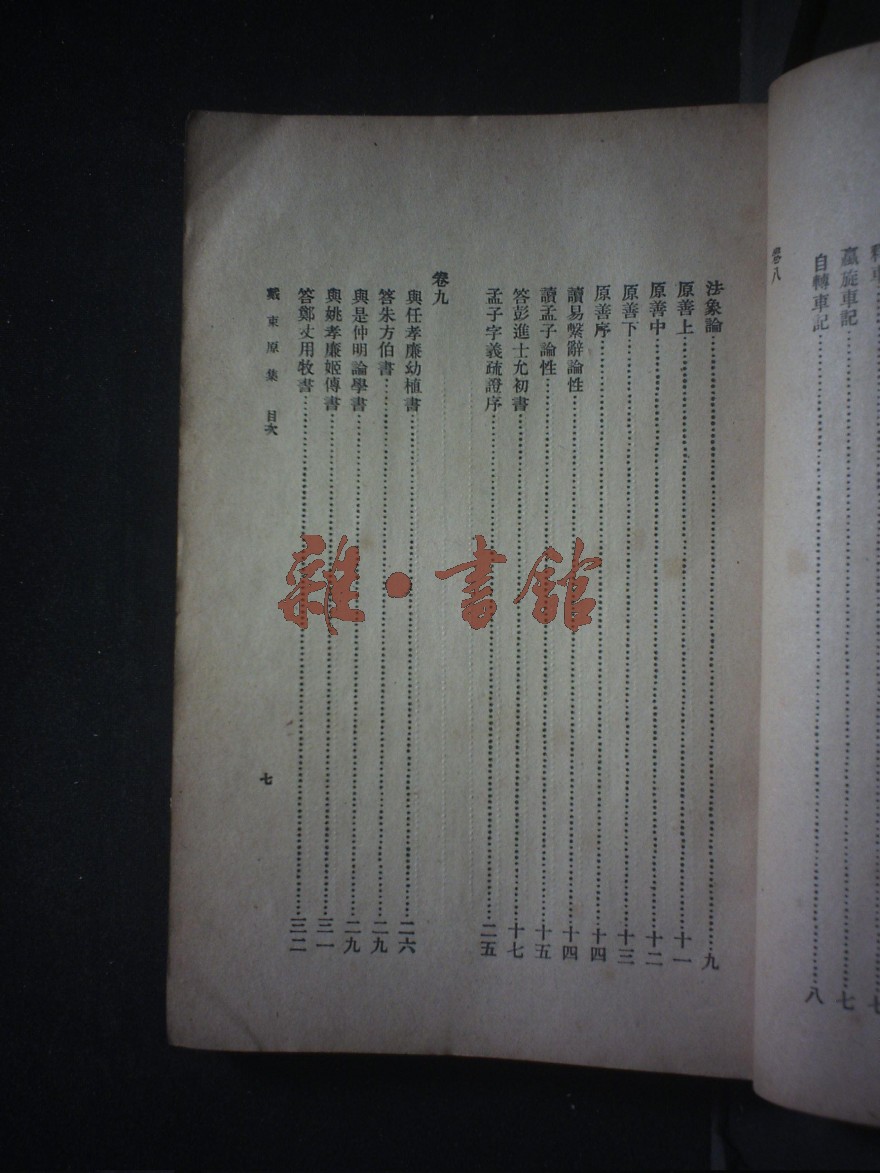 羸旋車記 七
自轉車記 八
卷八
法象論 九
原善上 十一
原善中 十二
原善下 十三
原善序 十四
讀易繫辭論性 十四
讀孟子論性 十五
答彭進士允初書 十七
孟子字義疏證序 二五
卷九
與任孝廉幼植書 二六
答朱方伯書 二九
與是仲明論學書 二九
與姚孝廉姬傳書 三一
答鄭丈用牧書 三二
戴東原集 目次
七
雜·書館